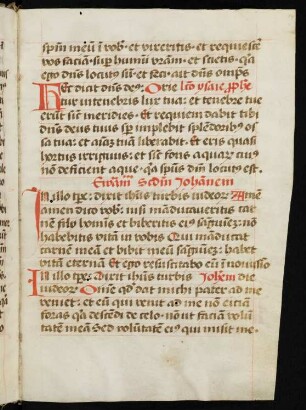 spm meū ī vob᷒ · et viveritis · et requiescē
vos faciā · sup humū vrām · et scietis · q̄a
ego dns locut᷒ sū et feci · ait dns omps
Hec dicit dns deꝰ : Orie lc̄o ysaie ꝓphe
tur in tenebris lux tua · et tenebre tue
erūt sic̄ meridies · Et requiem dabit tibi
dns deus tuus sꝑ implebit splēdorib᷒ os
sa tua · et assa tua liberabit · Et eris quasi
hortus irriguus · et sic̄ fons aquar᷒ cui᷒
non deficient aque · q̄a ipsus dm̄ locut᷒ est ·
Ewanm̄ Scdm̄ Johānem
In illo tpr̄e : dixit ihūs turbis iudeor᷒ : Am̄
amen dico vob᷒ : nisi māducaveritis car
nem filii homīs et biberitis ei᷒ sāguinez : nō
habebitis vitā in vobis · Qui māducat
carnē meā et bibit meū sāguinez : habet
vitā eternā · Et ego resuscitabo eū ī novissīo
In illo tpr̄e : Dixit ihūs turbis Johem die
iudeor᷒ : Omne qd̄ dat michi pater ad me
veniet : et eū qui venit ad me nō eiciā
foras q̄a descēdi de celo · nō ut faciā volū
tatē meā Sed volūtatē ei᷒ qui misit me ·